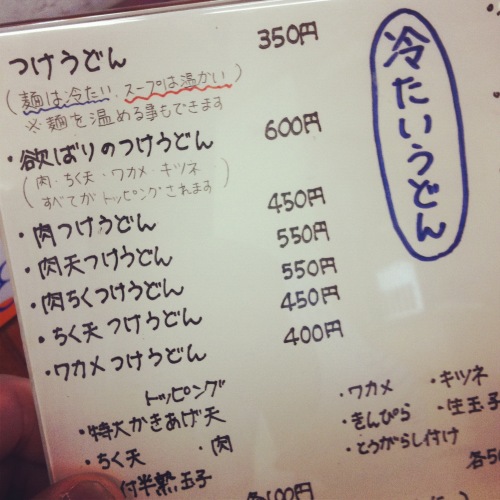 冷たいうどん
つけうどん 350円
(麺は冷たい、スープは温かい)
※麺を温める事もできます
・欲ばりのつけうどん 600円
(肉・ちく天・ワカメ・キツネ
すべてがトッピングされます)
・肉つけうどん 450円
・肉天つけうどん 550円
・肉ちくつけうどん 550円
・ちく天つけうどん 450円
・ワカメつけうどん 400円
トッピング
・特大かきあげ天
・ちく天 ・肉
付半熟玉子
各100円
・ワカメ ・キツネ
・きんぴら ・生玉子
・とうがらし付け
各5